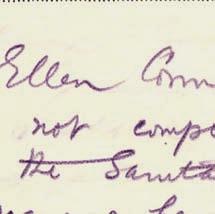 Ellen Conn
not comp
the Sanita